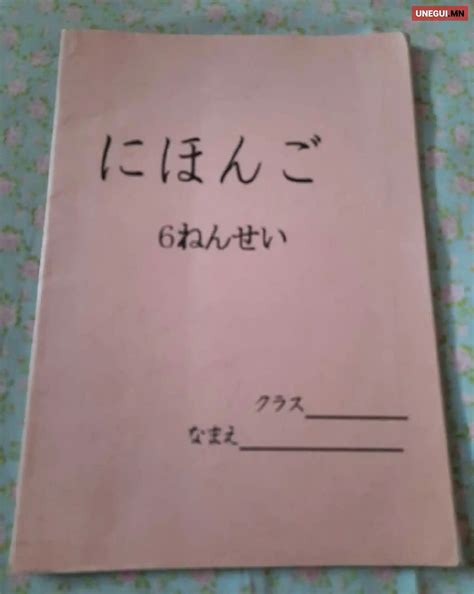 UNEGUI.MN
にほんご
6ねんせい
クラス
なまえ